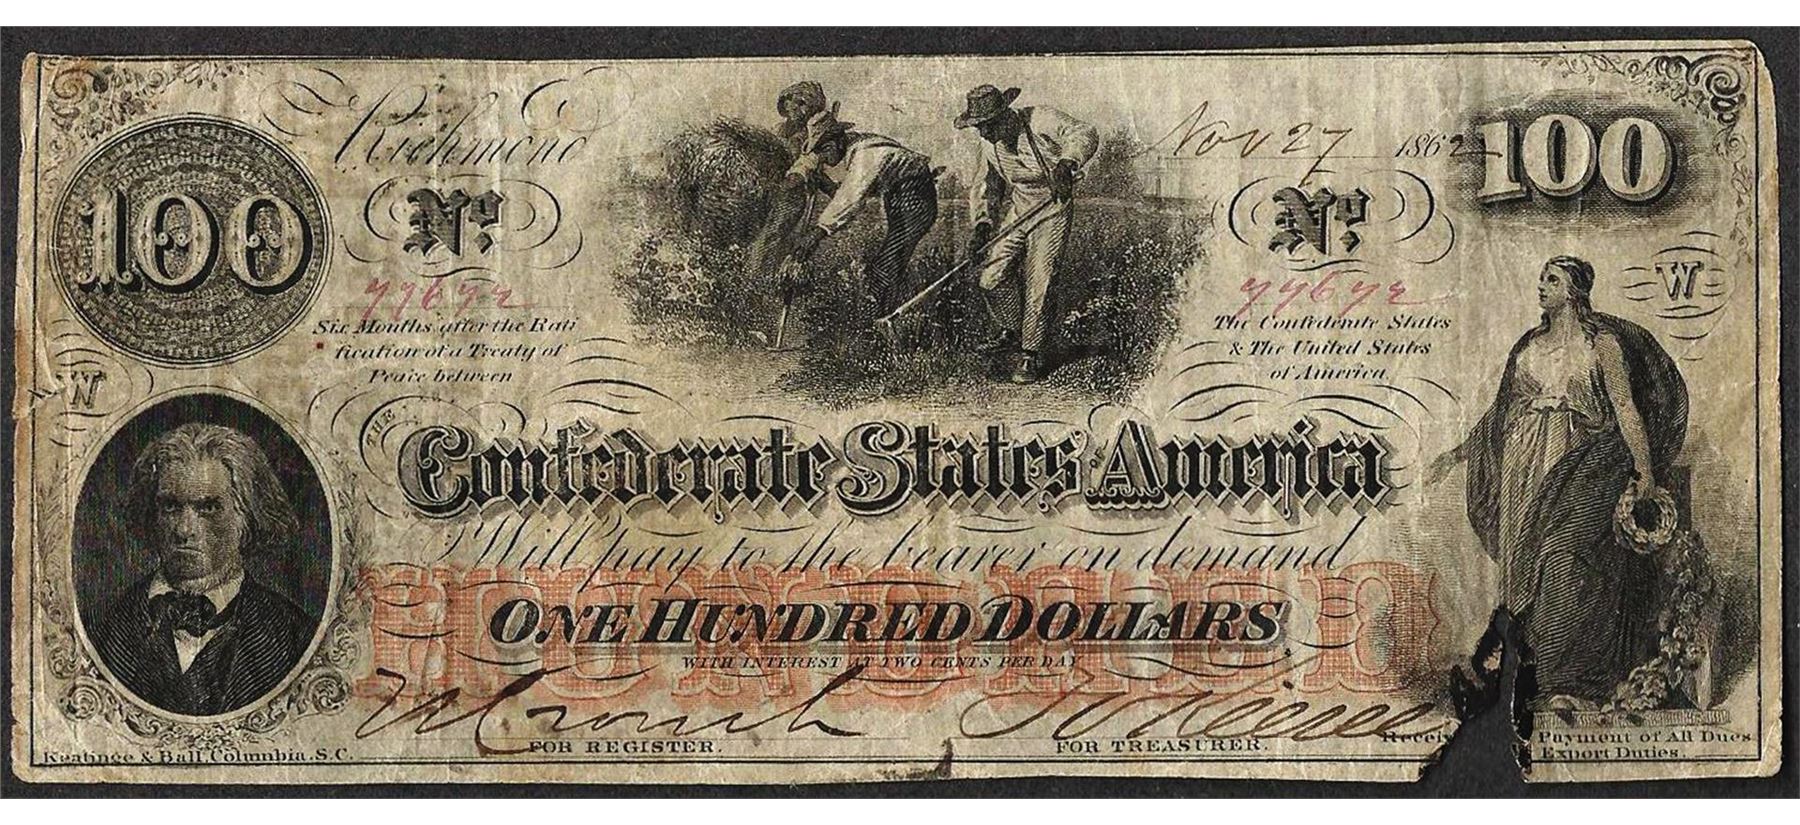 Richmond Nov 27 1862 100
100 No. No.
77672 77672
Six Months after the Rati The Confederate States
fication of a Treaty of & The United States
Peace between of America.
W W
THE Confederate States OF America
Will pay to the bearer on demand
HUNDRED
ONE HUNDRED DOLLARS
WITH INTEREST AT TWO CENTS PER DAY
FOR REGISTER. FOR TREASURER.
Keatinge & Ball, Columbia, S.C. Receiv Payment of All Dues
Export Duties.